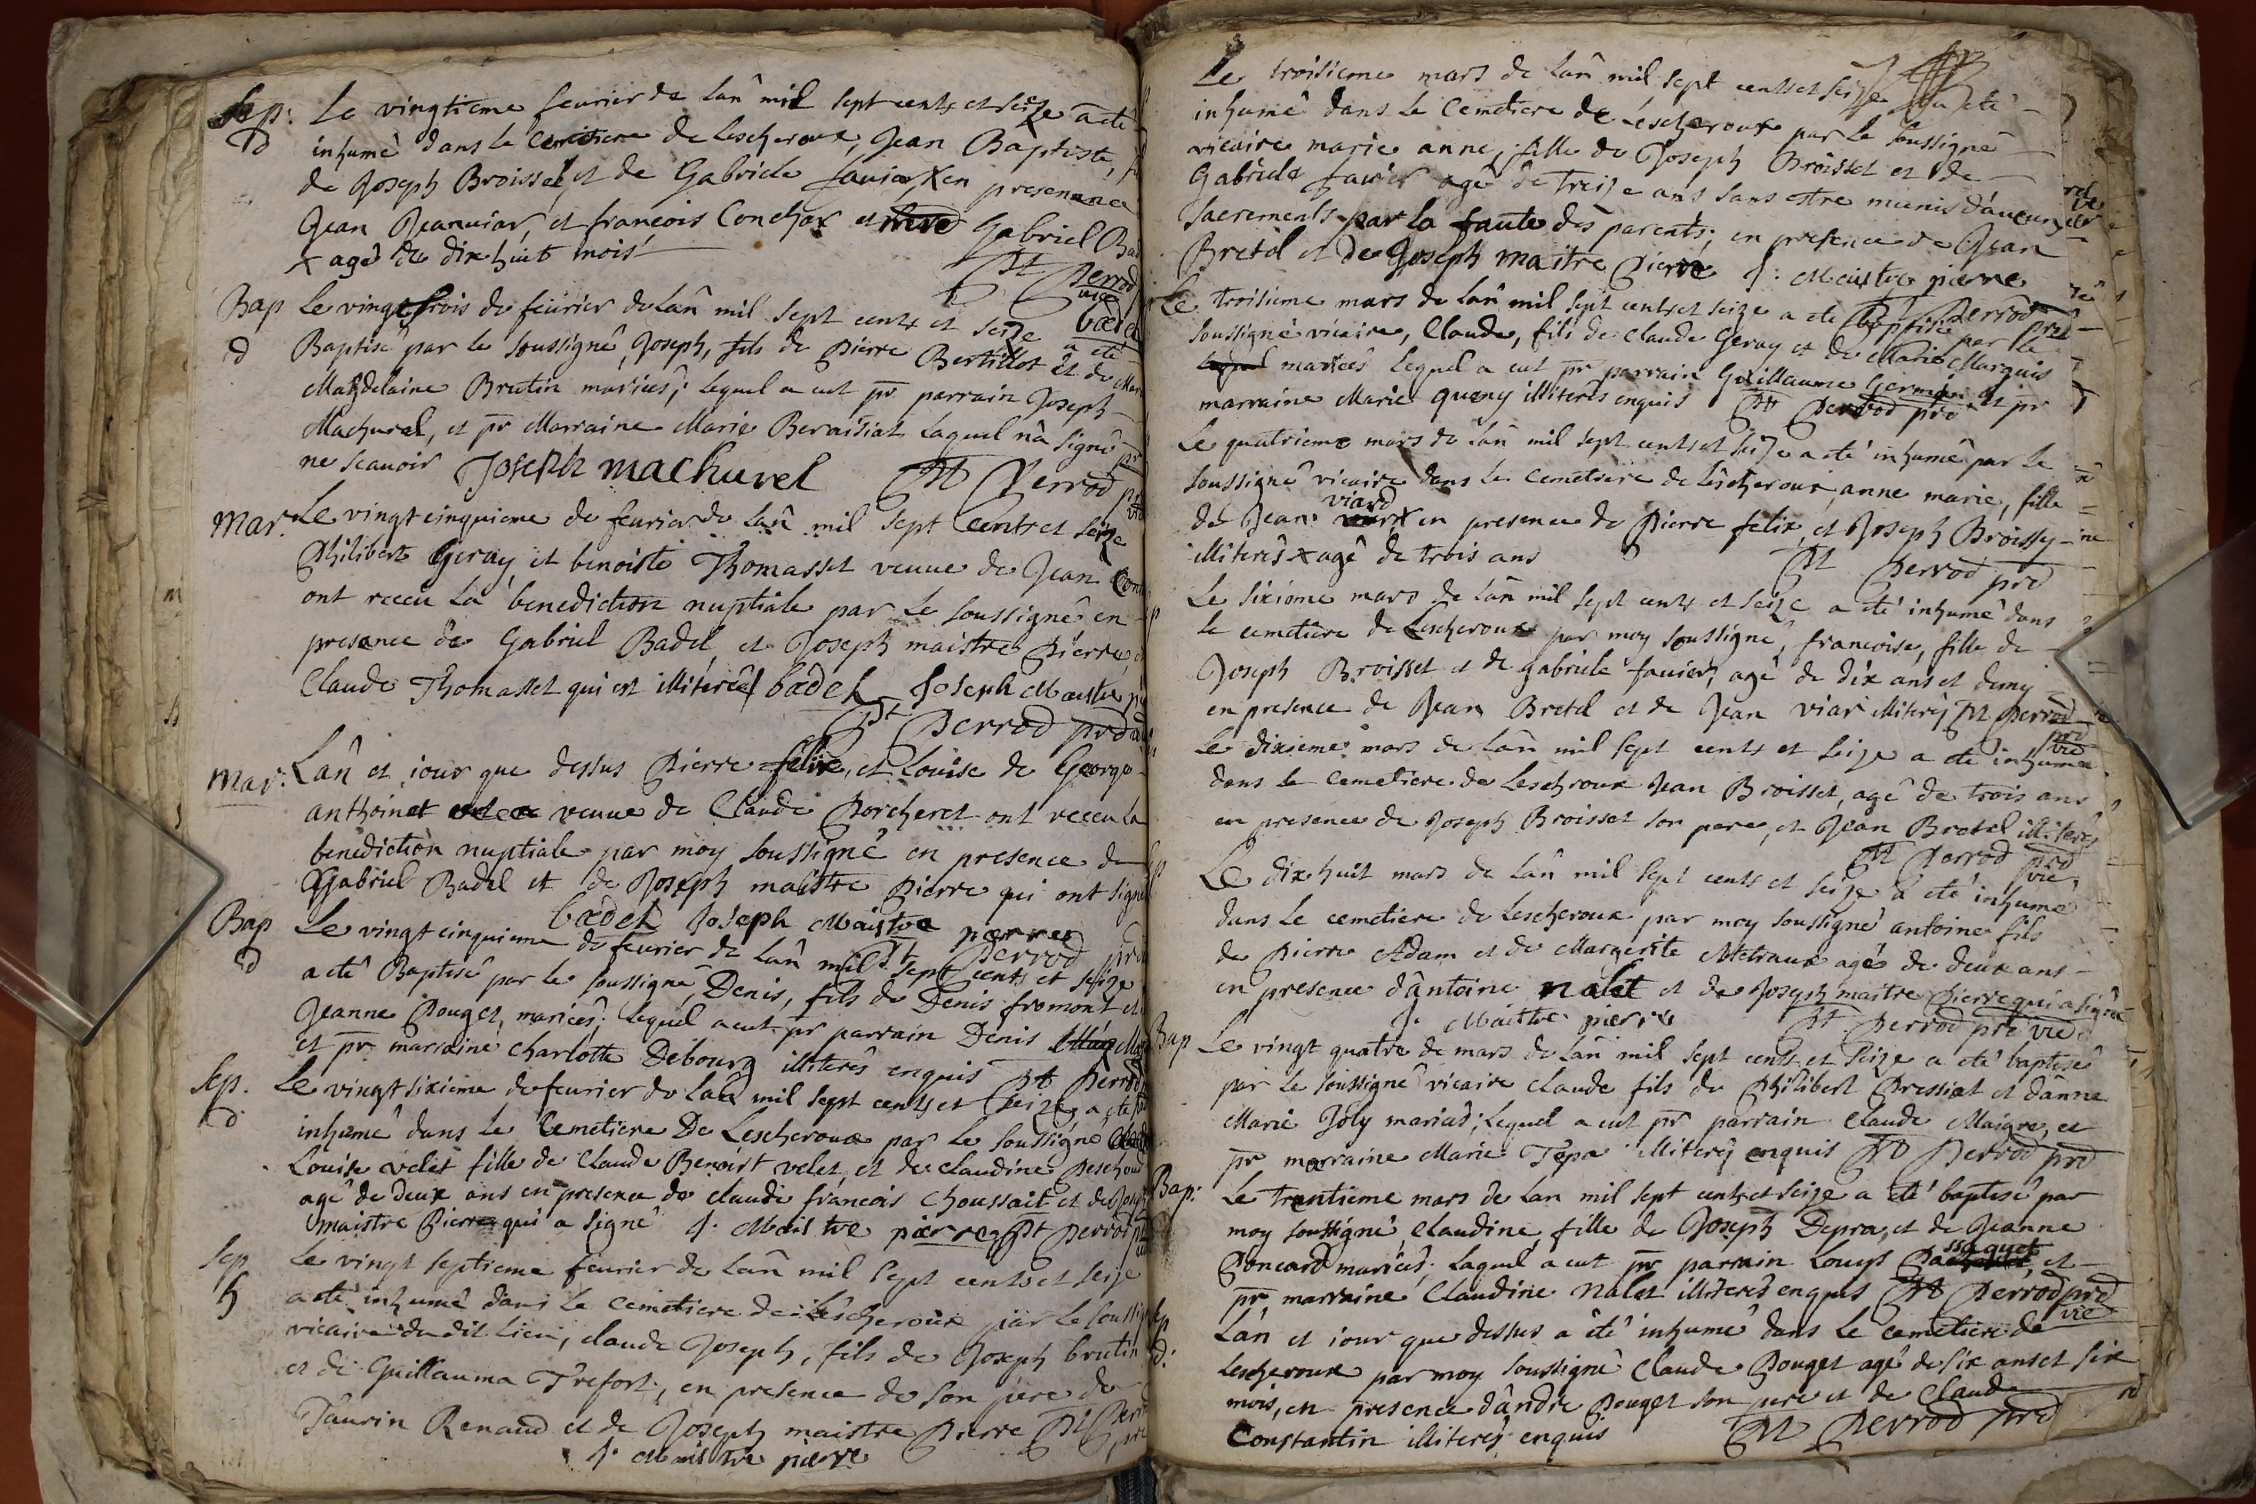 Sep: Le vingtieme feurier de Lân mil sept cents et seize a eté
d inhumé dans le Cemetiere de Lescheroux, Jean Baptiste,
de Joseph Broisset et de Gabriele fauier X en presence
Jean Jeanuiar, et francois Conchox et Gabriel
X agé de dix huit mois
Pt Perrod
vic
Bap Le vingt trois de feurier de Lân mil sept cents et seize a eté
d Baptisé par le soussigné, Joseph, fils de Pierre Bertillot et de
Magdelaine Brutin mariés; lequel a eut pr parrain Joseph
Machurel, et pr Marraine Marie Beraisiat Laquel n'a signé
ne scauoir Joseph machurel Pt Perrod
Mar. Le vingt cinquieme de feurier de Lân mil sept cents et seize
Philibert Geray et benoiste Thomasset veuue de Jean
ont receu La benediction nuptiale par le soussigné en
presence de Gabriel Badel et Joseph maistre Pierre,
Claude Thomasset qui est illiteré badel Joseph Maistre
Pt Perrod
Mar. Lân et iour que dessus Pierre felix, et Louise de George
anthoinet veuue de Claude Borcheret ont receu la
benediction nuptiale par moy soussigné en presence de
Gabriel Badel et de Joseph maistre Pierre qui ont signé
badel Joseph Maistre pierre
Pt Perrod
Bap Le vingt cinquieme de feurier de Lân mil sept cents et seize
d a eté Baptisé par le soussigné, Denis, fils de Denis fromont et
Jeanne Pouget, mariés; Lequel a eut pr parrain Denis
et pr marraine Charlotte Debourg illiterés enquis Pt Perrod
Sep. Le vingt sixieme de feurier de Lân mil sept cents et seize a eté
d. inhumé dans le Cemetiere De Lescheroux par le soussigné
Louise velet fille de Claude Benoist velet, et de claudine
agé de deux ans en presence de claude francois Choussait et de
maistre Pierre qui a signé J. Maistre pierre Pt Perrod
Sep Le vingt septieme feurier de Lân mil sept cents et seize
h a eté inhumé dans Le Cemetiere de Lescheroux par le
vicaire du dit Lieu, claude Joseph, fils de Joseph brutin
et de Guillauma Trefort, en presence de son pere de
Taurin Renaud et de Joseph maistre Pierre Pt
J. Maistre pierre
Le troisieme mars de Lân mil sept cents et seize a eté
inhumé dans Le Cemetiere de Lescheroux par le soussigné
vicaire marie anne, fille de Joseph Broisset et de
Gabriele fauier agé de treize ans sans estre munis d'aucun
sacrements par la faute des parents; en presence de Jean
Bretel et de Joseph maitre Pierre J: Maistre pierre
Pt Perrod prê
Le troisieme mars de Lân mil sept cents et seize a eté baptisé par le
soussigné vicaire, Claude, fils de Claude Geray et de Marie Marquis
mariés Lequel a eut pr parrain Guillaume et pr
marraine Marie quény illiterés enquis Pt Perrod prê
Le quatrieme mars de Lân mil sept cents et seize a eté inhumé par le
soussigné vicaire dans Le Cemetiere de Lescheroux anne marie, fille
viard
de Jean X en presence de Pierre felix, et Joseph Broissy
illiterés X agé de trois ans Pt Perrod prê
Le sixieme mars de Lân mil sept cents et seize a eté inhumé dans
le cemetiere de Lescheroux par moy soussigné, francoise, fille de
Joseph Broisset et de gabriele fauier, agé de dix ans et demy
en presence de Jean Bretel et de Jean viar illiterés Pt Perrod
prê vic
Le dixieme mars de Lân mil sept cents et seize a eté inhumé
dans le cemetiere de Leschroux Jean Broisset, agé de trois ans
en presence de Joseph Broisset son pere, et Jean Bretel illiterés
Pt Perrod prê vic
Le dix huit mars de Lân mil sept cents et seize a eté inhumé
dans le cemetiere de Lescheroux par moy soussigné antoine fils
de Pierre Adam et de Margerite Metraux agé de deux ans
en presence d'antoine nalet et de Joseph maitre Pierre qui a signé
J. Maistre pierre Pt Perrod prê vic
Bap Le vingt quatre de mars de Lân mil sept cents et seize a eté baptisé
par le soussigné vicaire claude fils de Philibert Pressiat et d'anne
Marie Joly mariés; Lequel a eut pr parrain Claude Maigre, et
pr marraine Marie Tepa illiterés enquis Pt Perrod prê
Bap: Le trentieme mars de Lan mil sept cents et seize a eté baptisé par
moy soussigné, claudine, fille de Joseph Depra, et de Jeanne
Poncard mariés; Laquel a eut pr parrain Louys et
pr marraine Claudine Nalet illiterés enquis Pt Perrod prê
vic
Lân et iour que dessus a eté inhumé dans le cemetiere de
d: Lescheroux par moy soussigné Claude Pouget agé de six ans et six
mois, en presence d'andre Pouget son pere et de Claude
Constantin illiterés enquis Pt Perrod prê